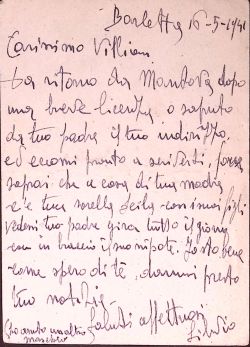 Barletta 16-5-1941
Carissimo Villiam.
Da ritorno da Mantova dopo
una breve licenza o saputo
da tuo padre il tuo indirizzo,
ed eccomi pronto a scriverti, forse
saprai che a casa di tua madre
c'è tua sorella Leila con i suoi figli
vedessi tuo padre gira tutto il giorno
con in braccio il suo nipote. Io sto bene
come spero di te, dammi presto
tue notizie.
Saluti affettuosi
Silvio
(Ho avuto un altro
maschio)